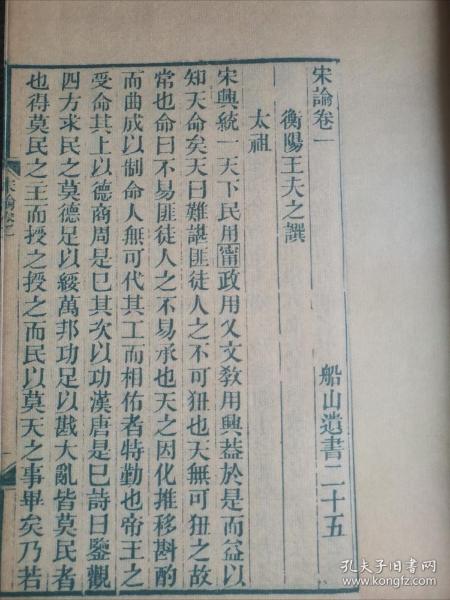 宋論卷一
船山遺書二十五
衡陽王夫之譔
太祖
宋興統一天下民用甯政用乂文敎用興葢於是而益以
知天命矣天曰難諶匪徒人之不可狃也天無可狃之故
常也命曰不易匪徒人之不易承也天之因化推移斟酌
而曲成以制命人無可代其工而相佑者特勤也帝王之
受命其上以德商周是已其次以功漢唐是已詩曰鑒觀
四方求民之莫德足以綏萬邦功足以戡大亂皆莫民者
也得莫民之主而授之授之而民以莫天之事畢矣乃若
宋論卷一
孔夫子旧书网